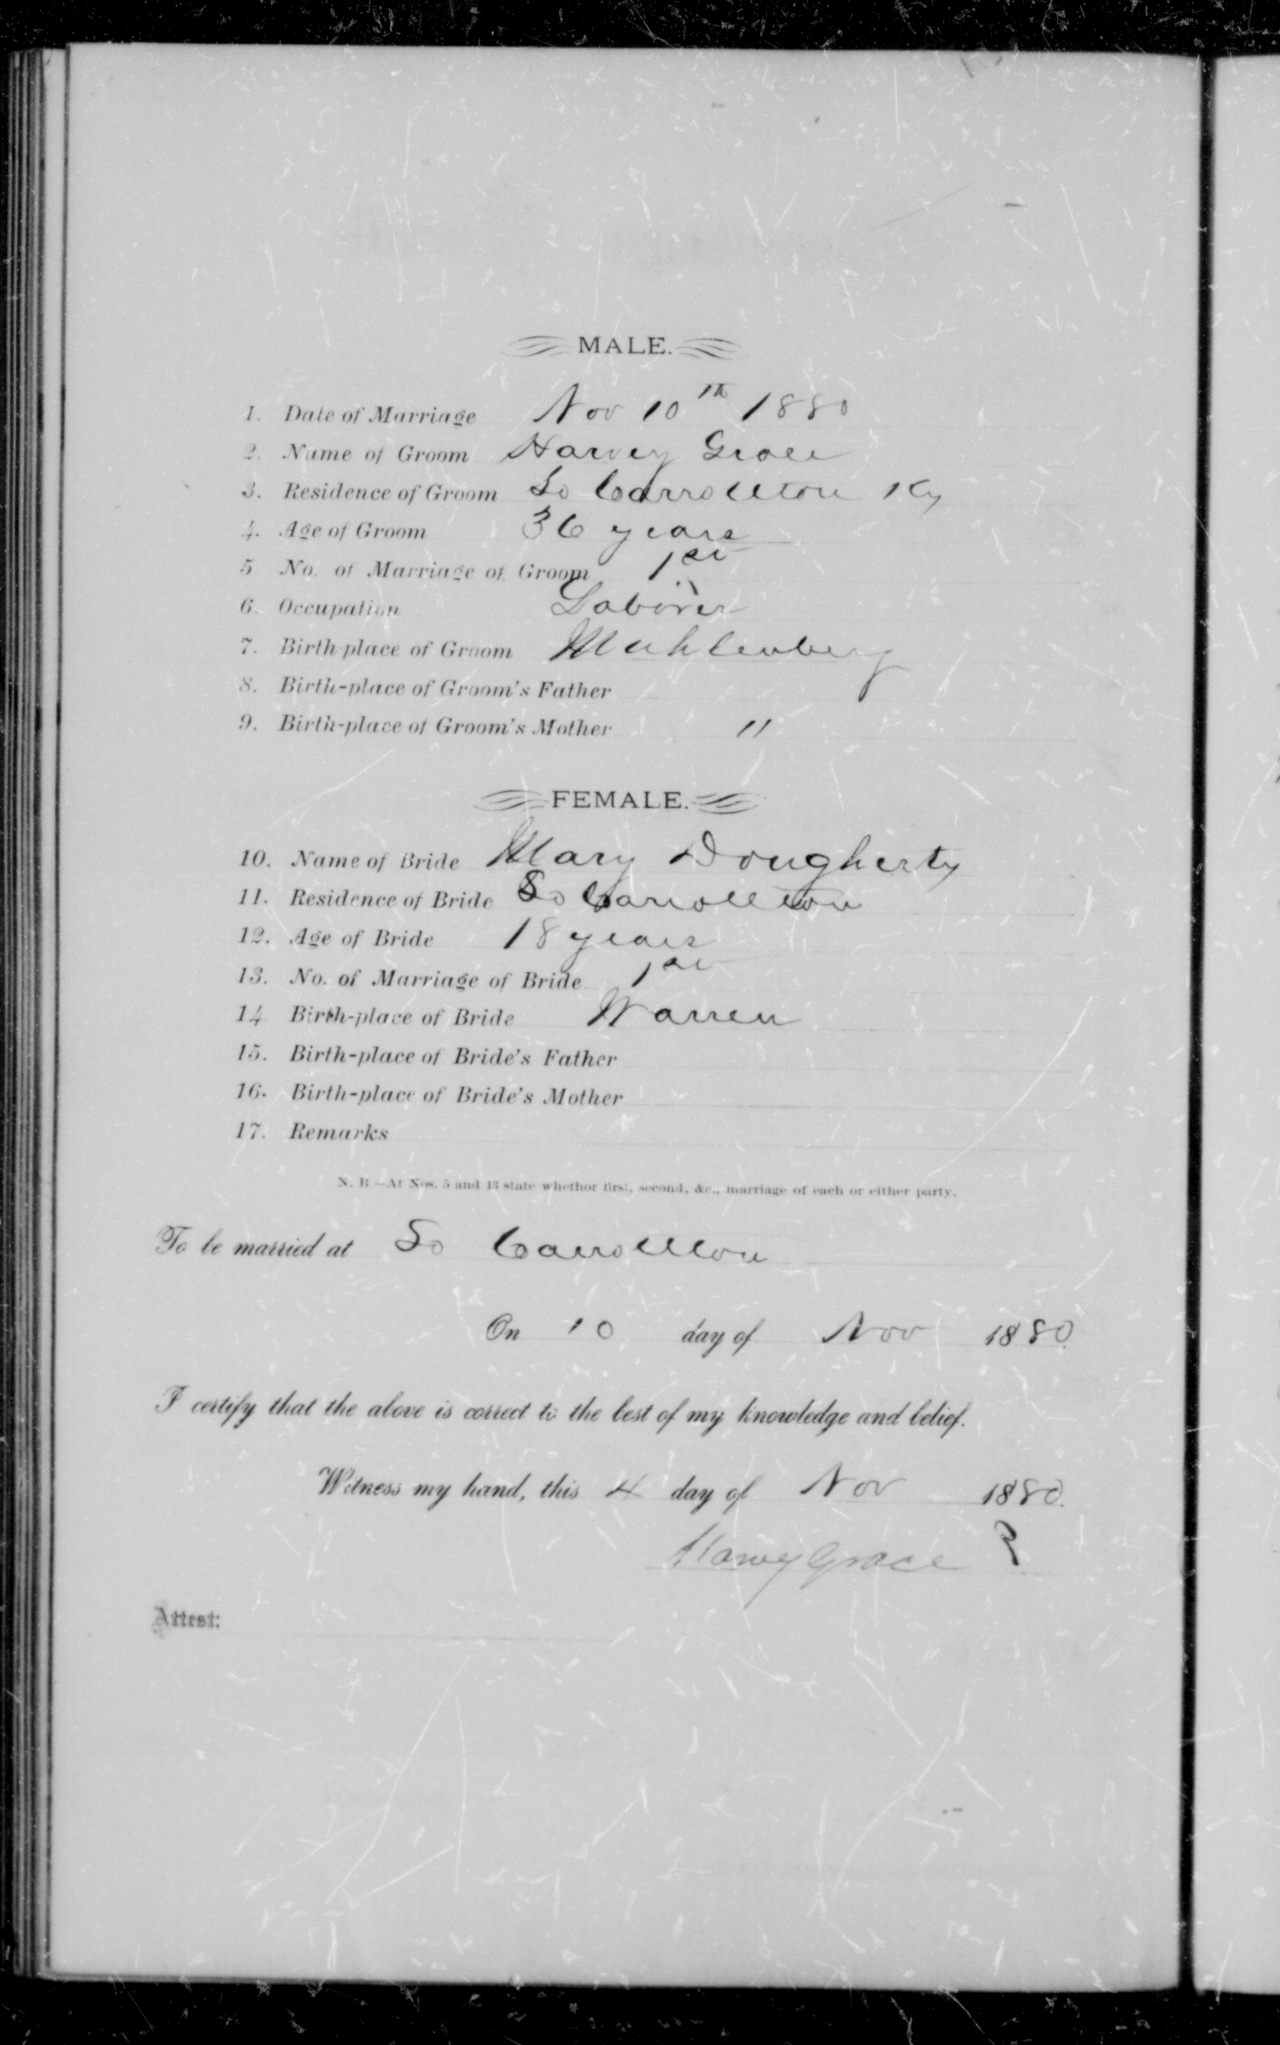 MALE.
1. Date of Marriage Nov 10th 1880
2. Name of Groom Harvey Grace
3. Residence of Groom So Carrollton Ky
4. Age of Groom 36 years
5 No. of Marriage of Groom 1st
6. Occupation Laborer
7. Birth-place of Groom Muhlenberg
8. Birth-place of Groom's Father
9. Birth-place of Groom's Mother "
FEMALE.
10. Name of Bride Mary Dougherty
11. Residence of Bride So Carrollton
12. Age of Bride 18 years
13. No. of Marriage of Bride 1st
14 Birth-place of Bride Warren
15. Birth-place of Bride's Father
16. Birth-place of Bride's Mother
17. Remarks
N. B.—At Nos. 5 and 13 state whethor first, second, &c., marriage of each or either party.
To be married at So Carrollton
On 10 day of Nov 1880
I certify that the above is correct to the best of my knowledge and belief.
Witness my hand, this 4 day of Nov 1880.
Harvey Grace
Attest: